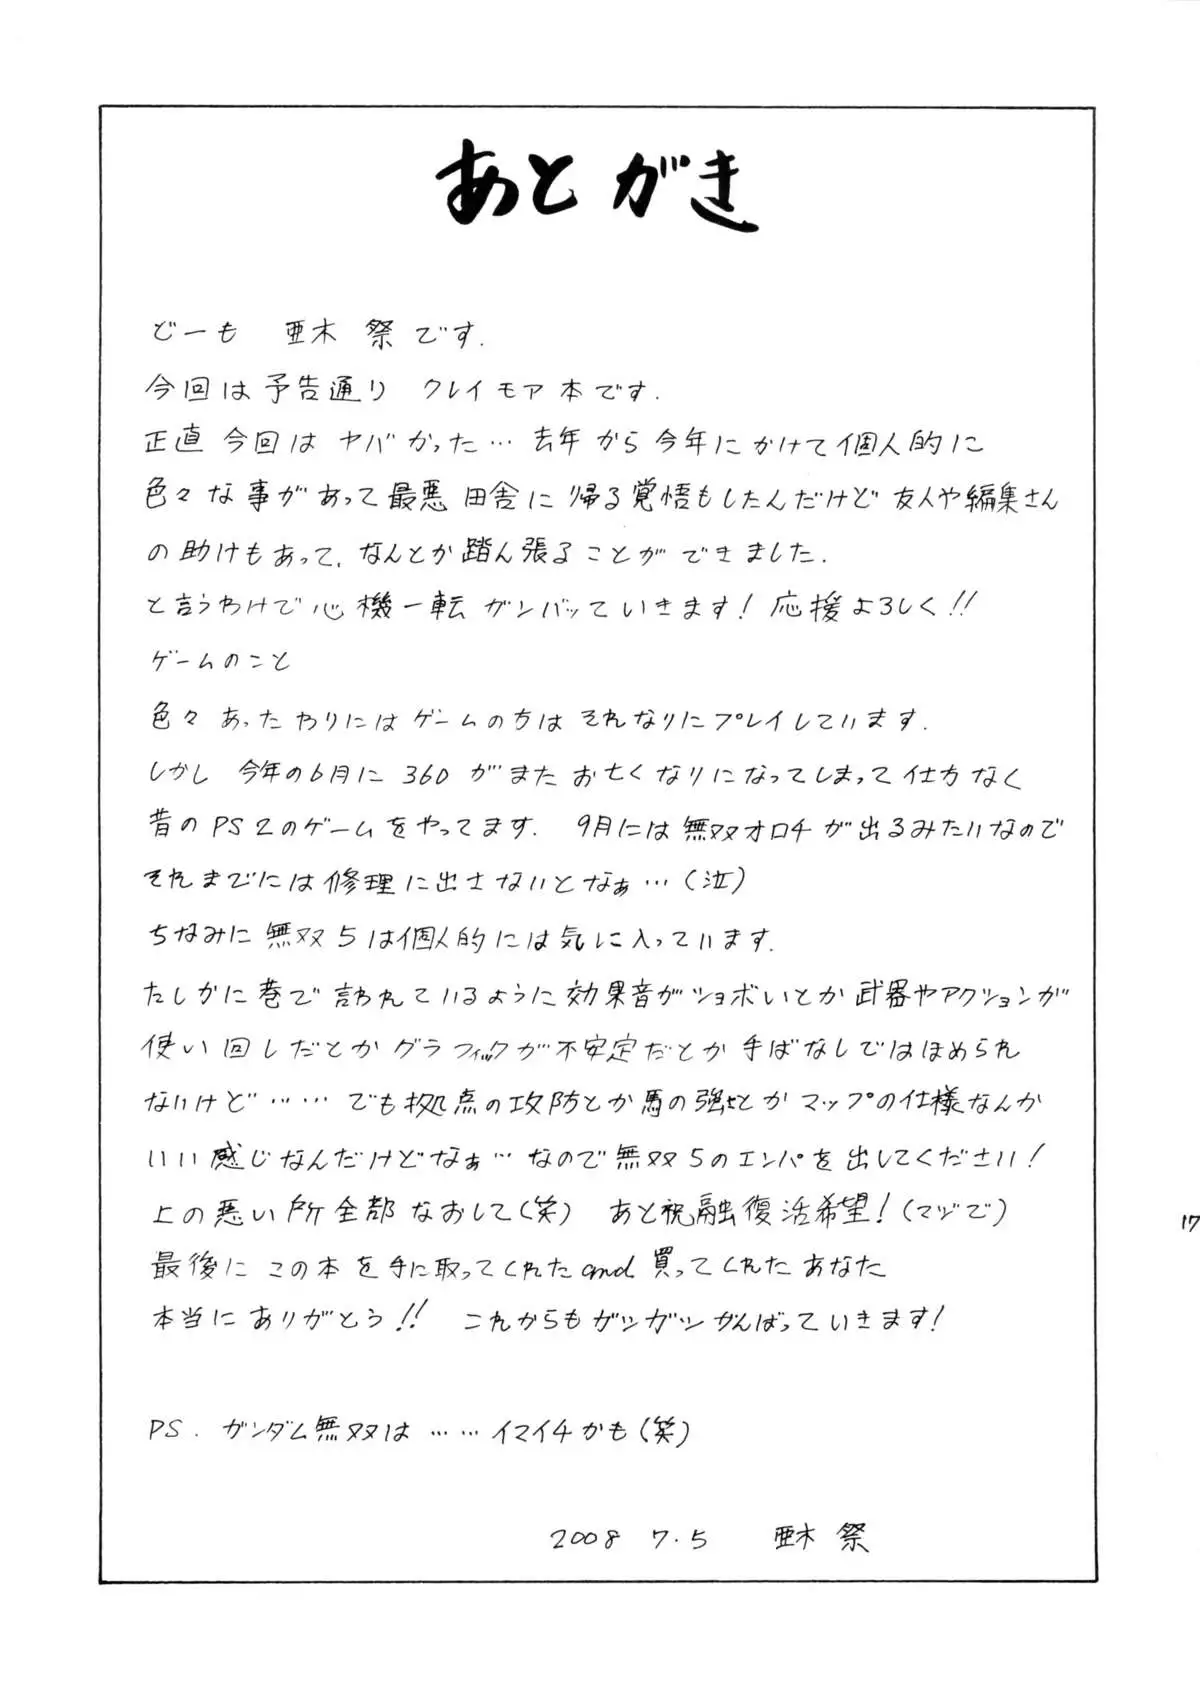 あとがき
どーも 亜木 祭です.
今回は予告通り クレイモア本です.
正直今回は ヤバかった… 去年から今年にかけて個人的に
色々な事があって最悪田舎に帰る覚悟もしたんだけど友人や編集さん
の助けもあって.なんとか踏ん張ることができました.
と言うわけで心機一転ガンバッていきます!応援よろしく!!
ゲームのこと
色々あったわりにはゲームの方はそれなりにプレイしています.
しかし 今年の6月に360がまたお亡くなりになってしまって仕方なく
昔のPS2のゲームをやってます. 9月には無双オロチが出るみたいなので
それまでには修理に出さないとなぁ…(泣)
ちなみに無双5は個人的には気に入っています.
たしかに巷で言われているように効果音がショボいとか武器やアクションが
使い回しだとかグラフィックが不安定だとか手ばなしではほめられ
ないけど……でも拠点の攻防とか馬の強さとかマップの仕様なんか
いい感じなんだけどなぁ…なので無双5のエンパを出してください!
上の悪い所全部なおして(笑) あと祝融復活希望!(マヅで)
最後にこの本を手に取ってくれたand買ってくれたあなた
本当にありがとう!! これからもガツガツがんばっていきます!
PS. ガンダム無双は……イマイチかも(笑)
2008 7.5 亜木 祭
17